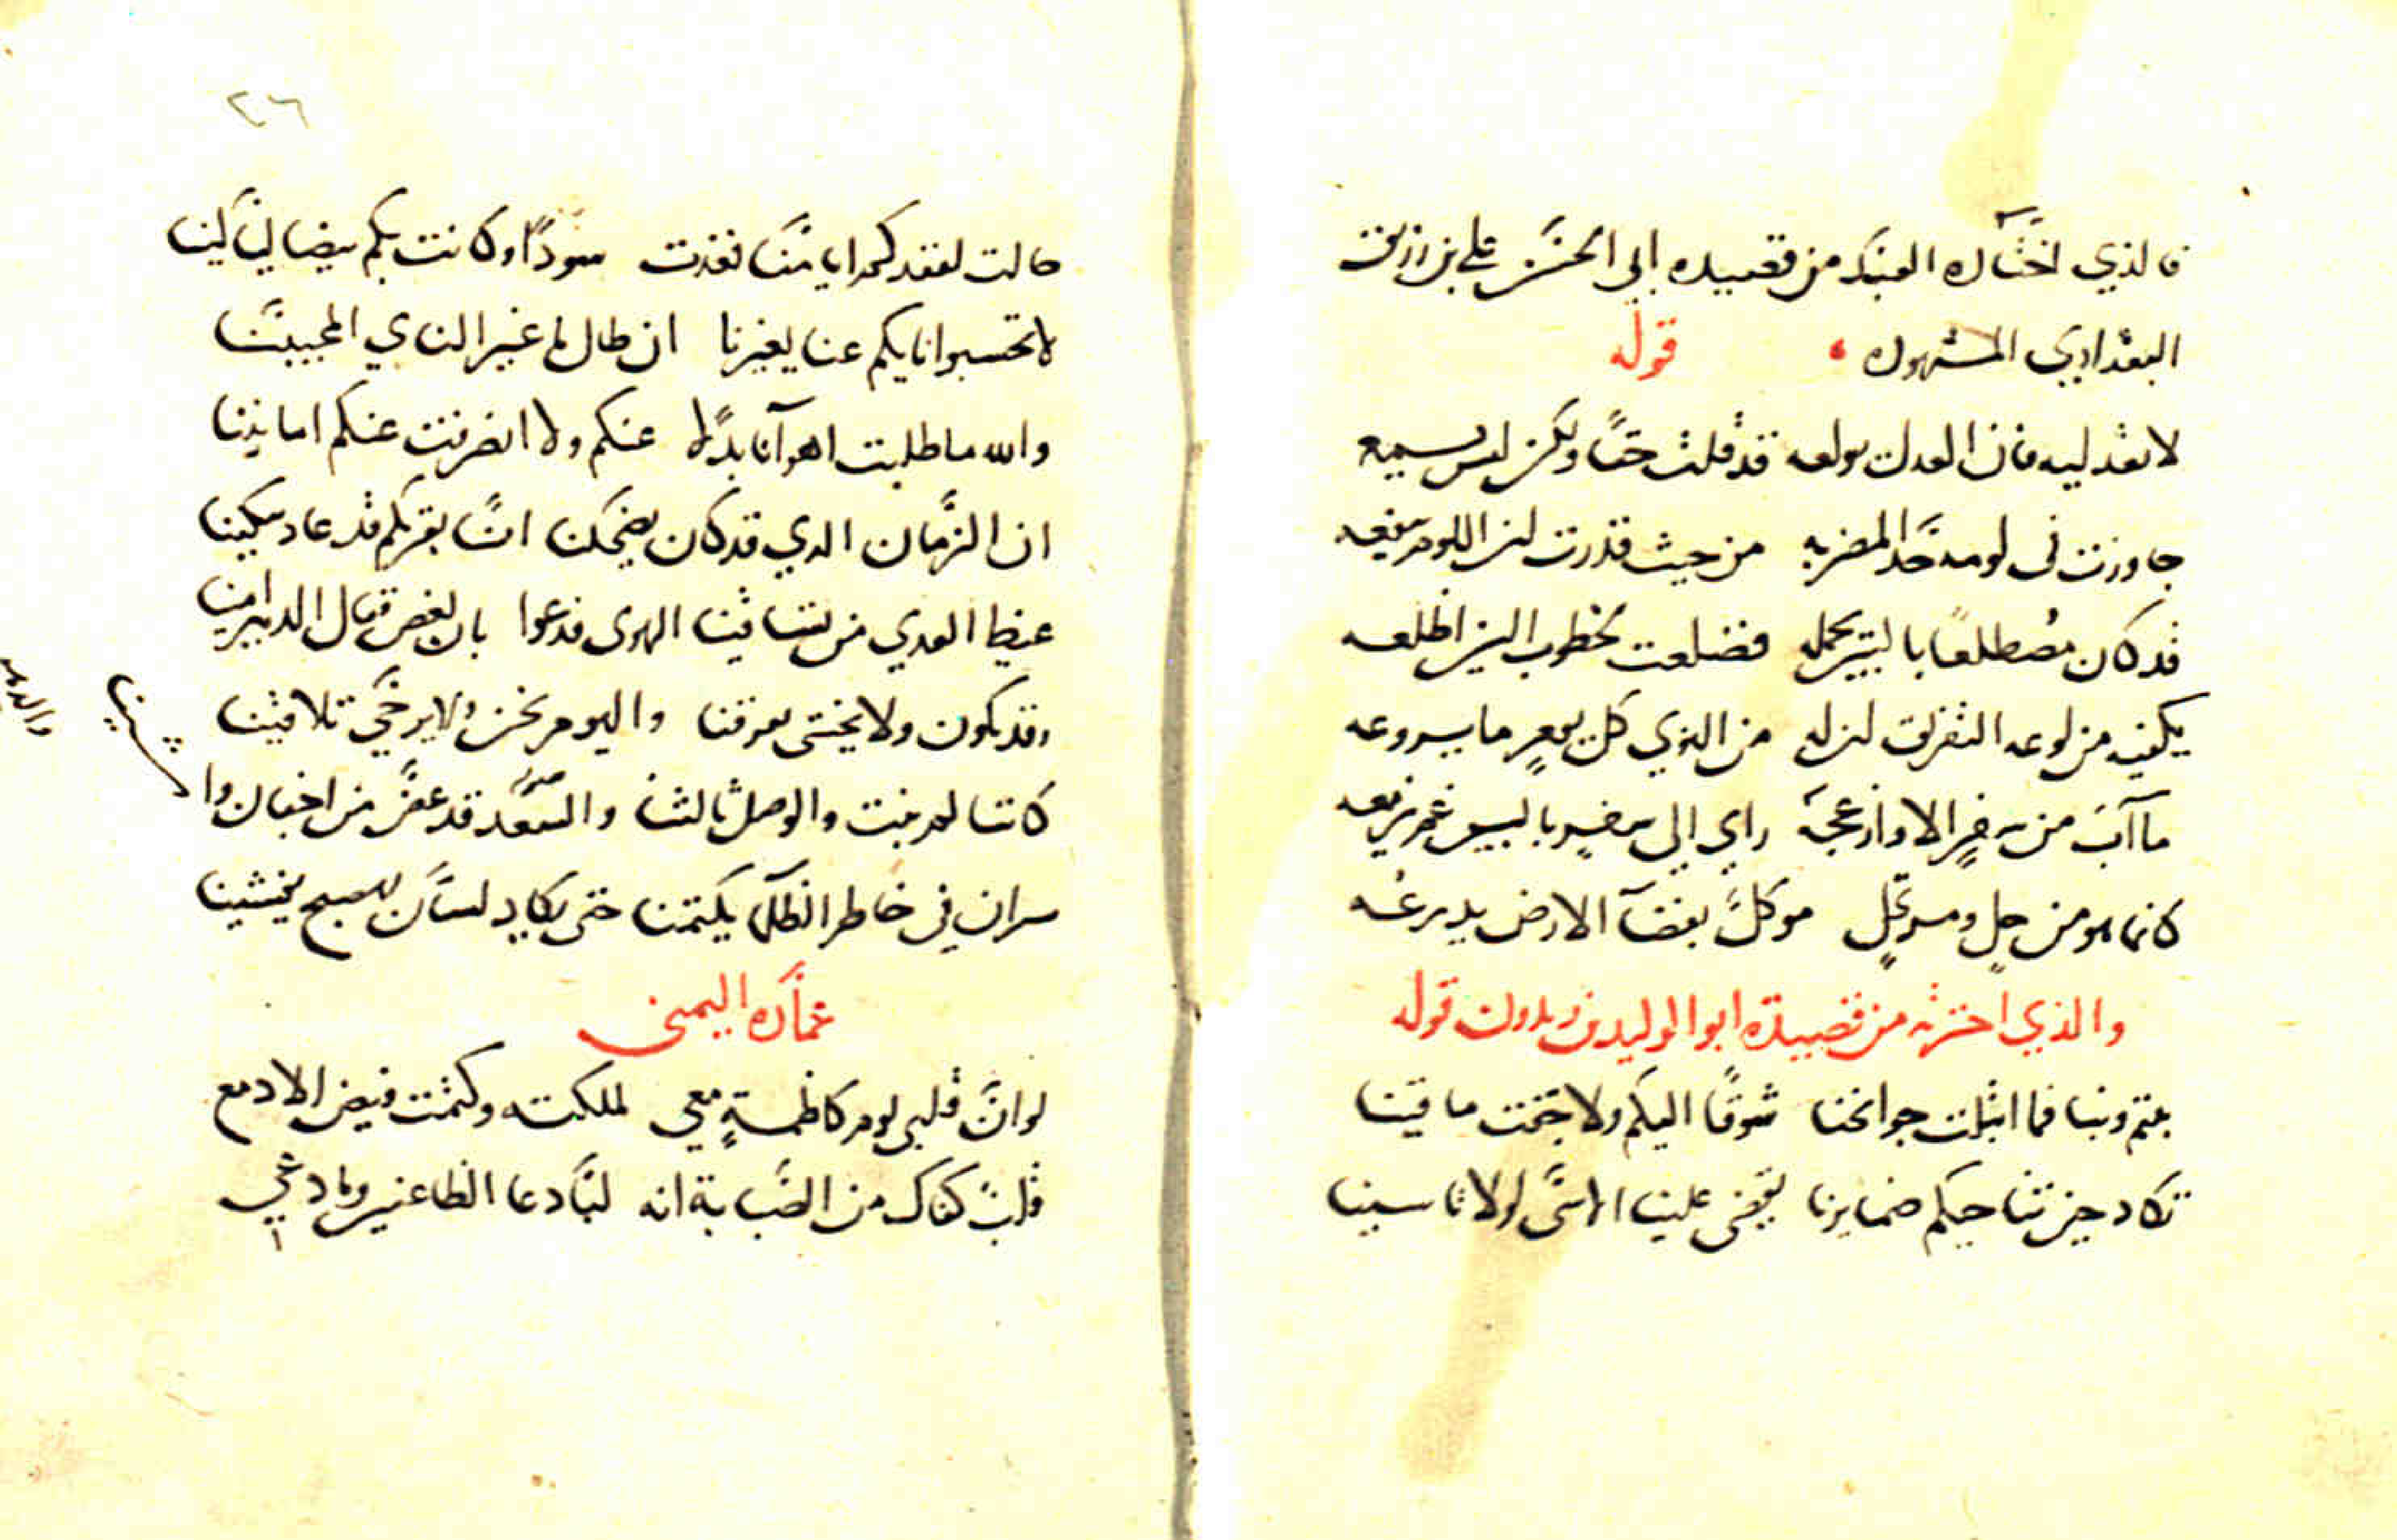 فالذي اختاره العبد من قصيده ابي الحسن علي بن زريق
البغدادي المشهوره ، قوله
لا تعذليه فان العذل يولعه قد قلت حقا ولكن ليس يسمعه
جاوزت في لومه حد المضر به من حيث قدرت ان اللوم ينفعه
قد كان مضطلعا بالبين يحمله فضلعت بخطوب البين اضلعه
يكفيه من لوعه التفريق ان له من النوي كل يوم ما يروعه
ما آب من سفر الا وازعجه راي الي سفر بالبين يزمعه
كانما هو من حل ومرتحل موكل بفضآ الارض يذرعه
والذي اخترته من قصيدة ابو الوليد بن زيدون قوله
بنتم وبنا فما ابتلت جوانحنا شوقا اليكم ولا جفت ماقينا
تكاد حين تناجيكم ضمايرنا يقضي علينا الاسى لولا تاسينا
٢٦
حالت لفقدكم ايامنا فغدت سودا وكانت بكم بيضا ليالينا
لا تحسبوا نايكم عنا يغيرنا ان طال ما غير الناي المحبينا
والله ما طلبت اهوآنا بدلا عنكم ولا انصرفت عنكم امانينا
ان الزمان الذي قد كان يضحكنا انسا بقربكم قد عاد يبكينا
غيظ العدي من تساقينا الهوى فدعوا بان نغص فقال الدهر امينا
وقد نكون ولا يخشى تفرقنا واليوم نحن ولا يرجي تلاقينا
كاننا لم نبت والوصل ثالثنا والسعد قد غض من اجفان واشينا
سران في خاطر الظلمآ يكتمنا حتى يكاد لسان الصبح يفشينا
عماره اليمنى
لو ان قلبي يوم كاظمة معي لملكته وكتمت فيض الادمع
قلب كفاك من الصبابة انه لبى دعا الظاعنين وما دعي